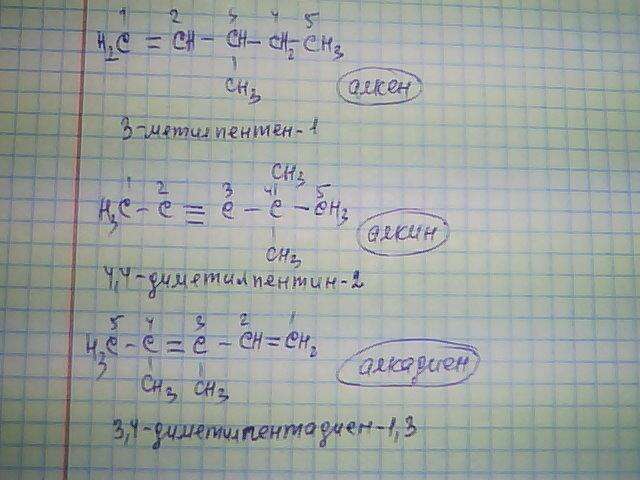 1 2 3 4 5
H₂C = CH - CH - CH₂ - CH₃
CH₃
алкен
3-метилпентен-1
CH₃
1 2 3 4 5
H₃C - C ≡ C - C - CH₃
CH₃
алкин
4,4-диметилпентин-2
5 4 3 2 1
H₃C - C = C - CH = CH₂
CH₃ CH₃
алкадиен
3,4-диметилпентадиен-1,3